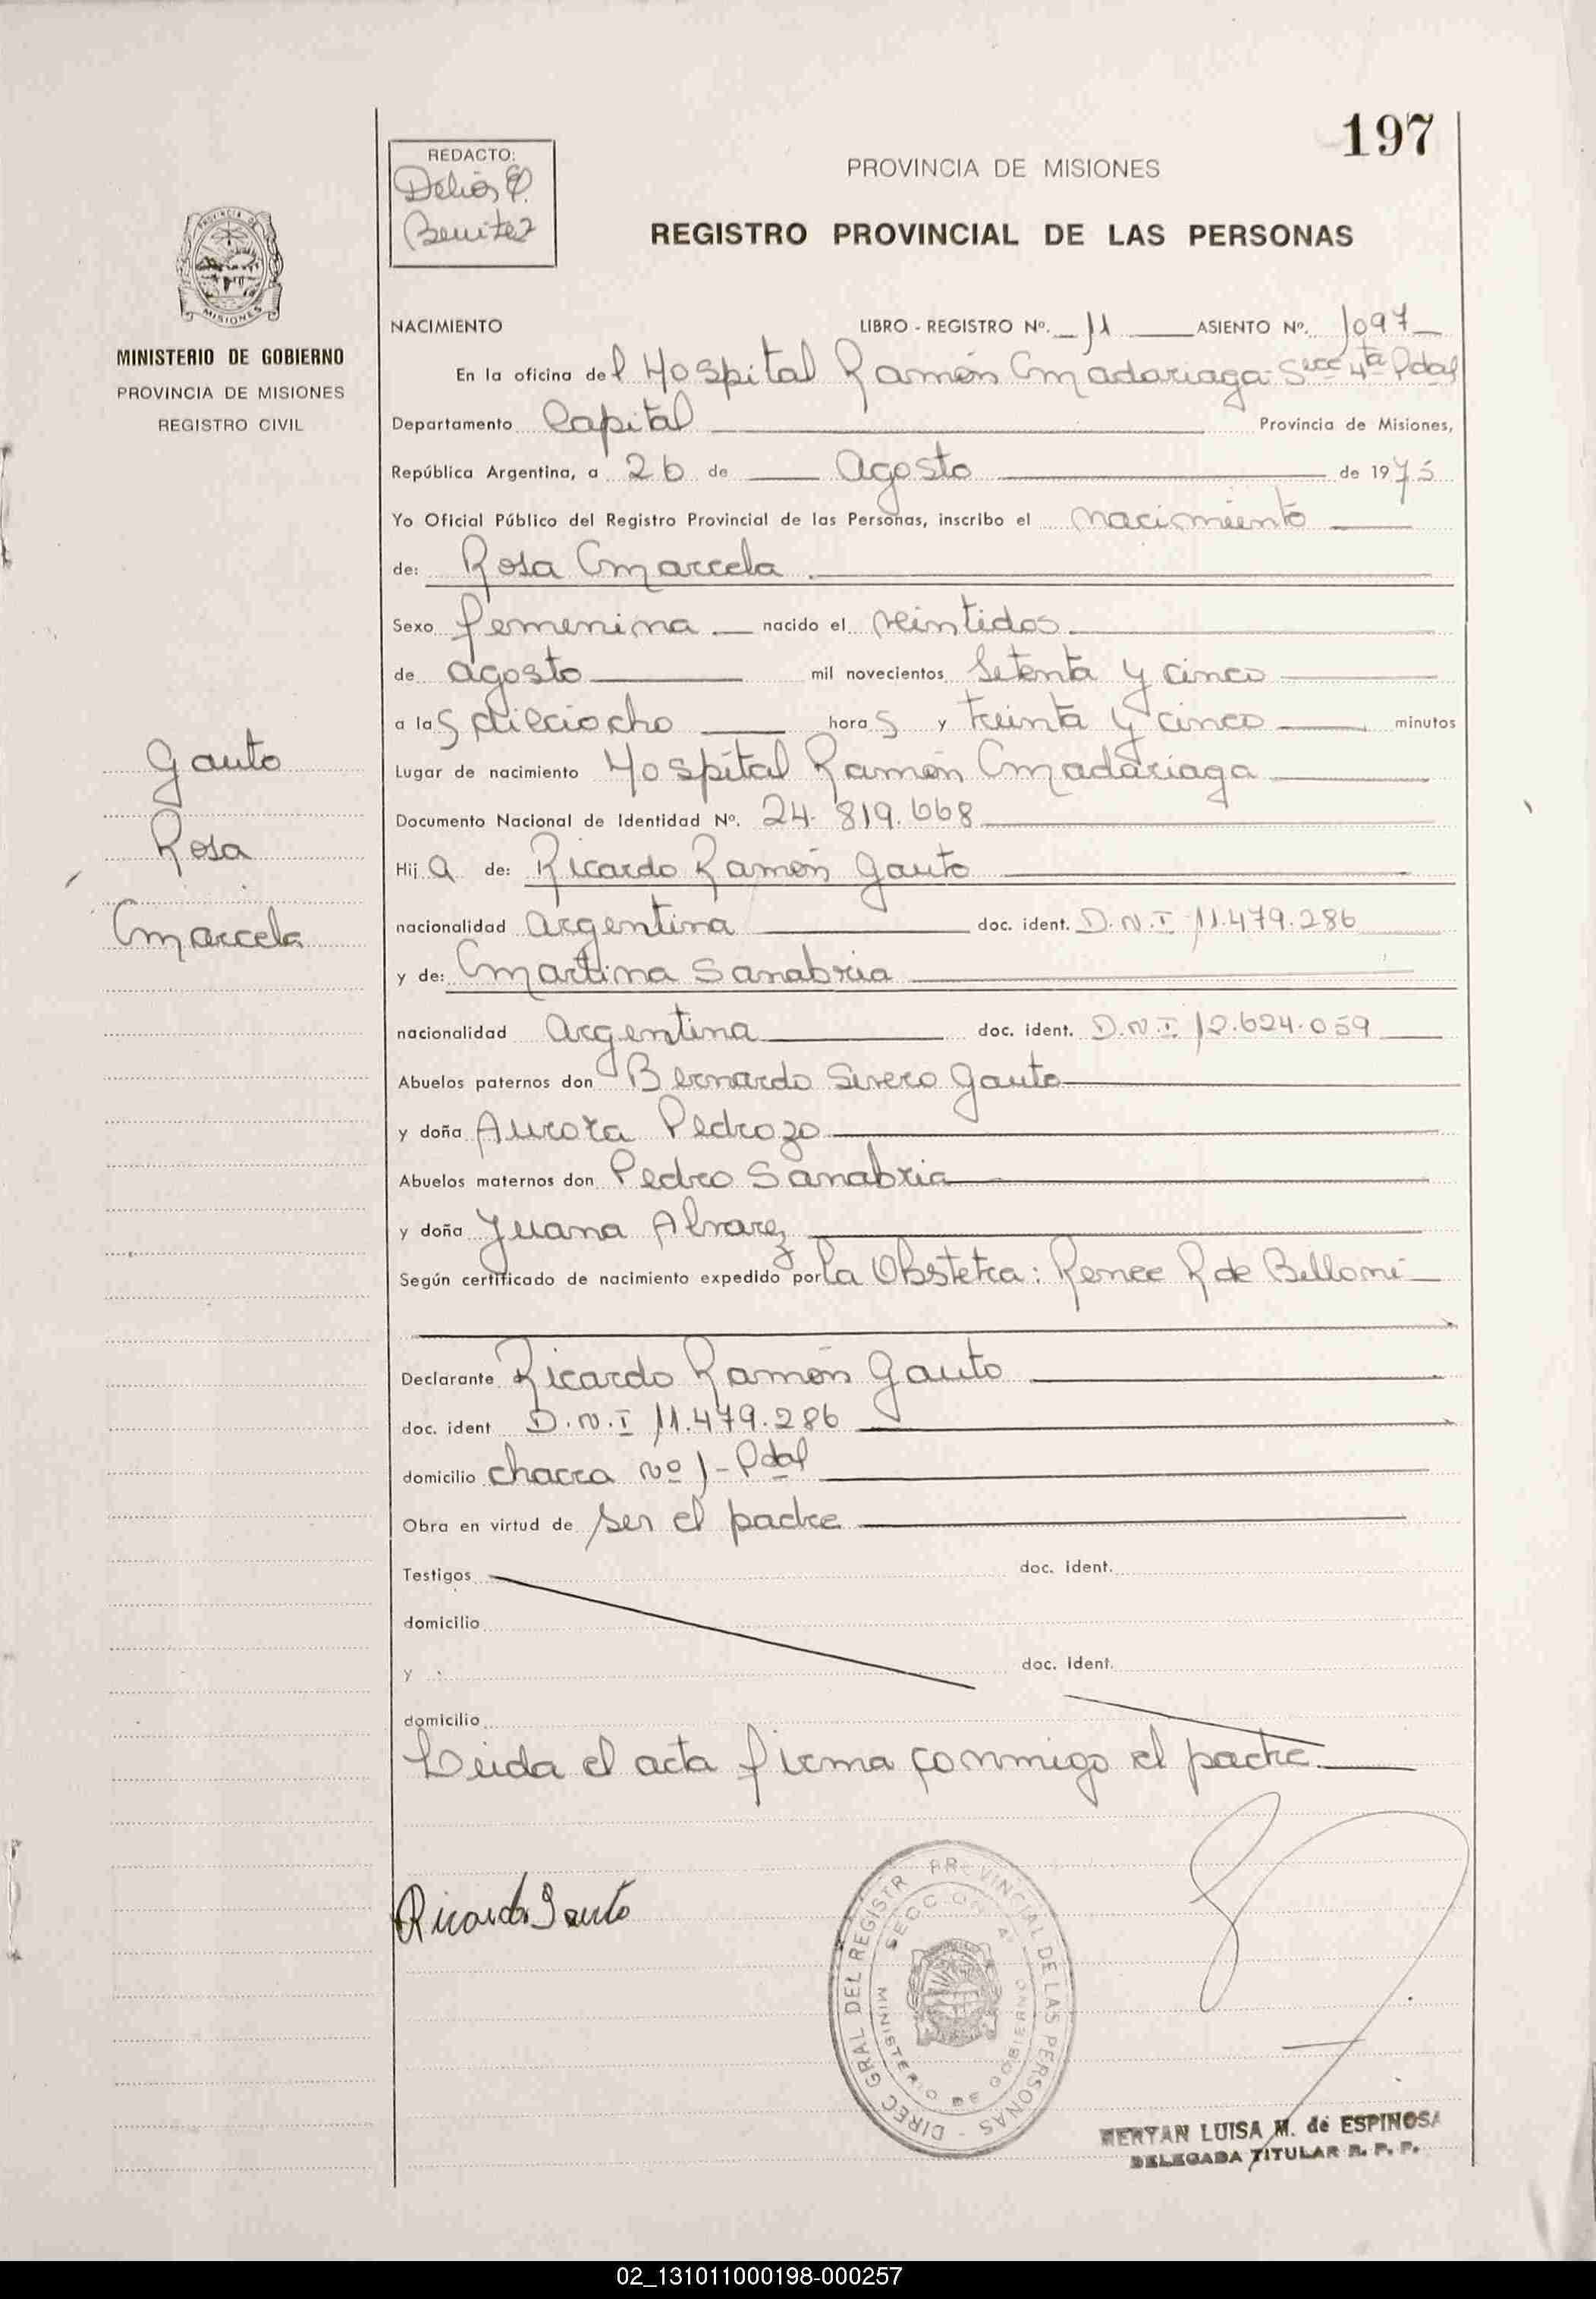 197
REDACTO:
Benitez
PROVINCIA DE MISIONES
REGISTRO PROVINCIAL DE LAS PERSONAS
PROVINCIA DE
MISIONES
MINISTERIO DE GOBIERNO
PROVINCIA DE MISIONES
REGISTRO CIVIL
Gauto
Rosa
Marcela
NACIMIENTO LIBRO - REGISTRO Nº. 11 ASIENTO Nº. 1097
En la oficina del Hospital Ramón Madariaga Secc 4ta Pdal
Departamento Capital Provincia de Misiones,
República Argentina, a 26 de Agosto de 1975
Yo Oficial Público del Registro Provincial de las Personas, inscribo el nacimiento
de: Rosa Marcela
Sexo femenina nacido el veintidos
de agosto mil novecientos Setenta y cinco
a las dieciocho horas y treinta y cinco minutos
Lugar de nacimiento Hospital Ramón Madariaga
Documento Nacional de Identidad Nº. 24.819.668
Hija de: Ricardo Ramón Gauto
nacionalidad Argentina doc. ident. D.N.I 11.479.286
y de: Martina Sanabria
nacionalidad Argentina doc. ident. D.N.I 12.624.059
Abuelos paternos don Bernardo Severo Gauto
y doña Aurora Pedrozo
Abuelos maternos don Pedro Sanabria
y doña Juana Alvarez
Según certificado de nacimiento expedido por la Obstetra: Renee R de Belloni
Declarante Ricardo Ramón Gauto
doc. ident D.N.I 11.479.286
domicilio chacra Nº 1 - Pdal
Obra en virtud de ser el padre
Testigos doc. ident.
domicilio
y doc. ident.
domicilio
Leida el acta firma conmigo el padre
Ricardo Gauto
DIREC GRAL DEL REGISTR PROVINCIAL DE LAS PERSONAS -
SECCION 4ª
MINISTERIO DE GOBIERNO
LUISA M. de ESPINOSA
DELEGADA TITULAR R. P. P.
02_131011000198-000257